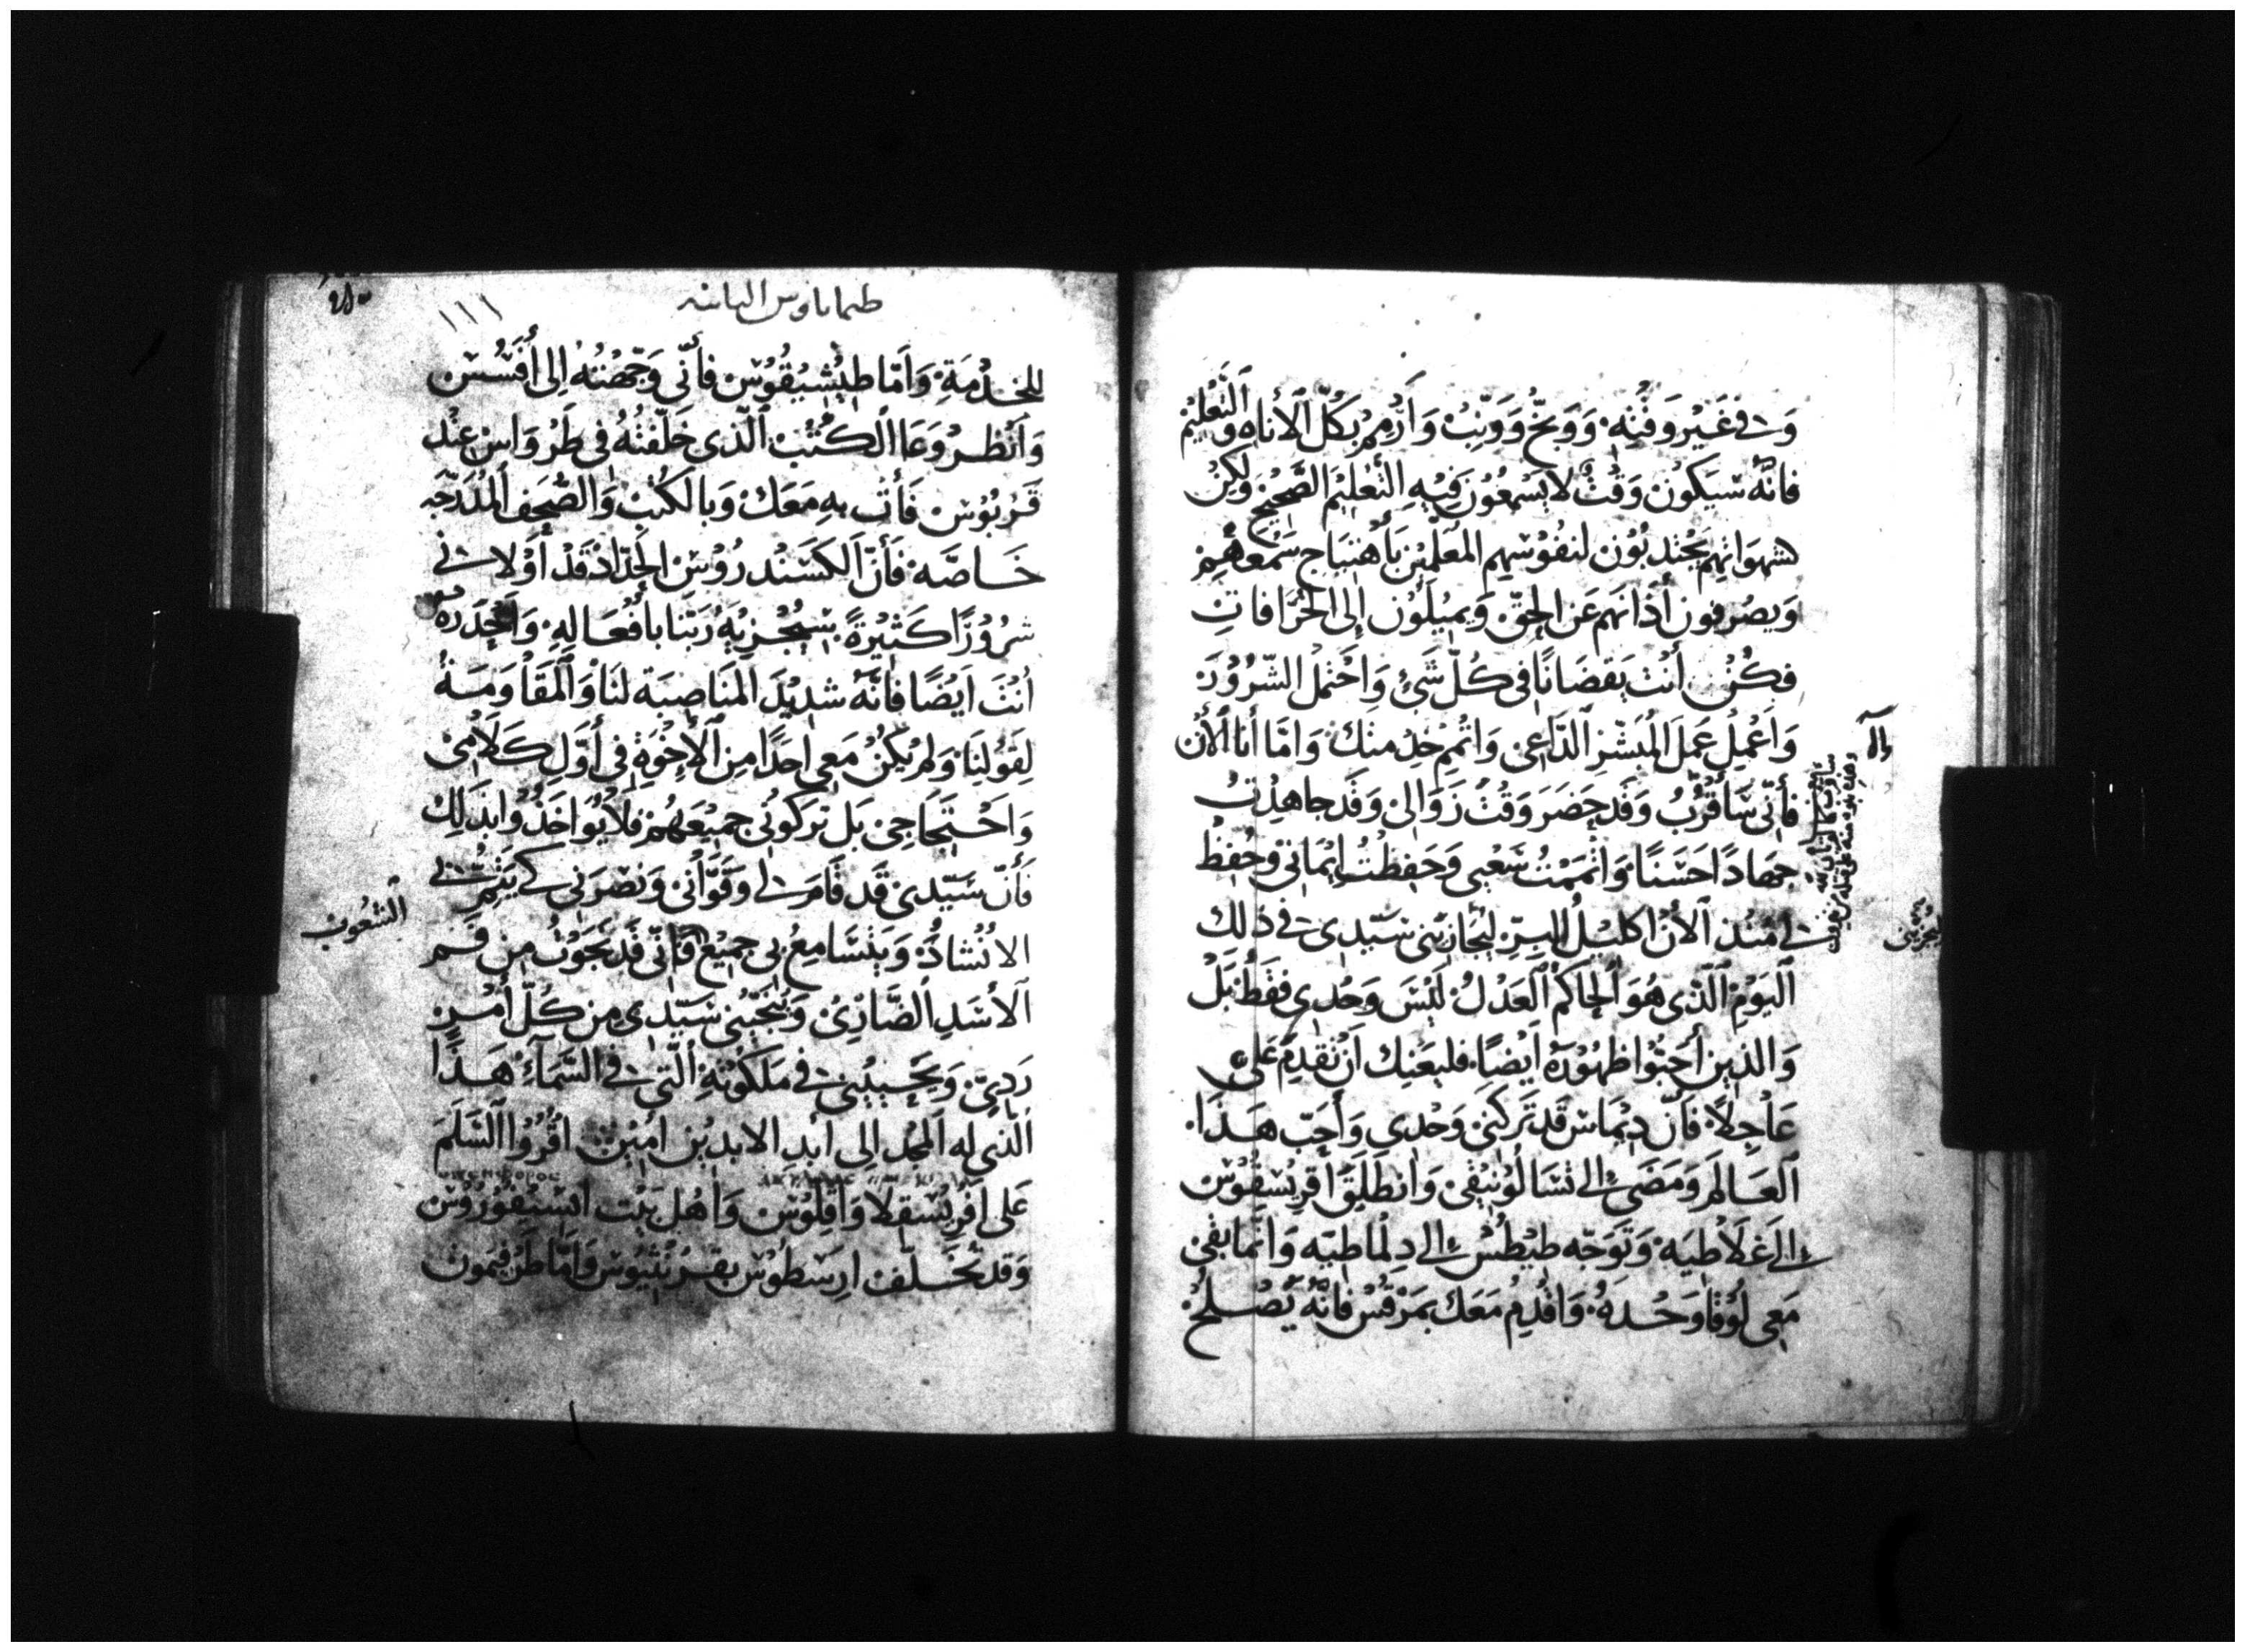 وَفي غَيْرِ وَقْتِهِ، وَوَبِّخْ وَوَنِّبْ وَازْمِرْ بِكُلِّ الأناه وَالتَّعْلِيْمِ
فانَّهُ سَيَكُونْ وَقْتٌ لا يَسْمَعُوْنَ فِيْهِ التَّعْلِيْمَ الصَّحِيْحَ وَلكِنْ
كشهوَاتِهِم يَجْتَذِبُوْن لنفُوْسِهِم المُعَلِّمِيْن بأهْتِيَاجِ سَمْعِهُمْ
وَيصْرِفون أذَانَهم عَن الحَقِّ، وَيميْلُوْن إلى الخُرَافاتِ
فكُنْ أنْتَ يَقضَانًا في كُلِّ شَيْءٍ وَاحْتمِلْ الشّرُوْرَ
وَاعْمِلْ عَمَلَ المُبَشِّرِ الدَّاعِي وَاتْمِم خِدْمتكَ وَامّا أنَا الأنْ
فأنِّي سَأقرَّبُ وَقَد حَضَرَ وَقْتُ زَوَالي وَقَد جَاهدْتُ
جِهَادًا حَسَنًا، وَاتْمَمْتُ سَعْيي وَحَفِظْتُ إيْمَاني وَحُفِظَ
لي مُنْذ الأنْ اكليْلُ البِرِّ ليُجَازيَني سَيّدِي في ذلكَ
اليَوْمِ الّذي هُوَ الحَاكمُ العَدْلُ لَيْسَ وَحْدِي فقَطْ بَلْ
وَالذين أحَبّوْا ظهُوْرَهُ أيْضًا، فليعَنِيك أنْ تَقدِمَ عَليّ
عَاجِلاً، فَأنّ دِيْمَاسَ قَد تَرَكنَي وَحْدِي وَأحَبّ هَذَا
العَالَمَ وَمَضَى إلى تَسَالُوْنيْقي وَانْطَلَقَ أقرِيْسقُوْسْ
إلى غَلاطيَه وَتَوَجّه طيْطُسْ إلى دِلماطيّه وَانّما بقيَ
مَعِي لُوْقا وَحْدَهُ، وَاقْدِم مَعَكَ بمَرْقُسْ فانَّهُ يَصْلحُ
وإلا
طيماتاوس الثانيه
١١١
للخدْمَةِ، وَأمّا طيْشيْقُوْسْ فأنّي وَجّهْتُهُ إلى أفَسُسْ
وَانْظر وِعَا الكُتُبْ الّذي خَلّفْتُهُ في طَرْوَاسْ عِنْد
قَرْبُوْسْ فَأْتِ بهِ مَعَكَ وَبالكُتُبْ وَالصُّحَف المُدَرّجَه
خَاصّه، فَأنّ الكَسَنْدرُوْسَ الحَدّادْ قَدْ أوْلاني
شرُوْرًا كَثِيْرَةً، سَيُجْزِيْهِ رَبّنا بأفْعَالِهِ، وَاحْذَرهُ
أنْتَ أيْضًا فانَّهُ شدِيْدَ المُنَاصِبَة لنَا وَالمُقَاوَمَةْ
لِقَوْلنَا، وَلمْ يَكُنْ مَعِي احَدًا مِن الأخْوَةِ في أوَّلِ كَلامي
وَاحْتجَاجِي، بَل تركُوني جَميْعَهُمْ فَلا يُوَاخَذُوْا بذَلكَ
فَأنّ سَيّدي قَد قَامَ لي وَقَوّاني وَنَصَرَني كَي يَتمّ لي
الانْشَاد وَيَتَسَامعُ بي جميْع فَأنّي قَد نَجَوْتُ مِن فَمِ
الشُعُوْب
الأسَدِ الضّارِيْ، وَيُنَجّيْني سَيّدِي مِن كُلِّ أمْرٍ
رَدِيّ، وَيُحْييْني في مَلَكُوتِهِ الّتي في السَّمَاءِ هَذَا
الذي له المَجْد إلى ابْدِ الابدِيْن امِيْن اقْرُوا السَّلَمَ
عَلى افْرِيْسقلا وَاقلُوْس وَاهْل بَيْت انسيْفُوْرُوْسْ
وَقد تخَلّف ارِسْطُوس بقرنْثيُوْس وَأمّا طرْفيمُون